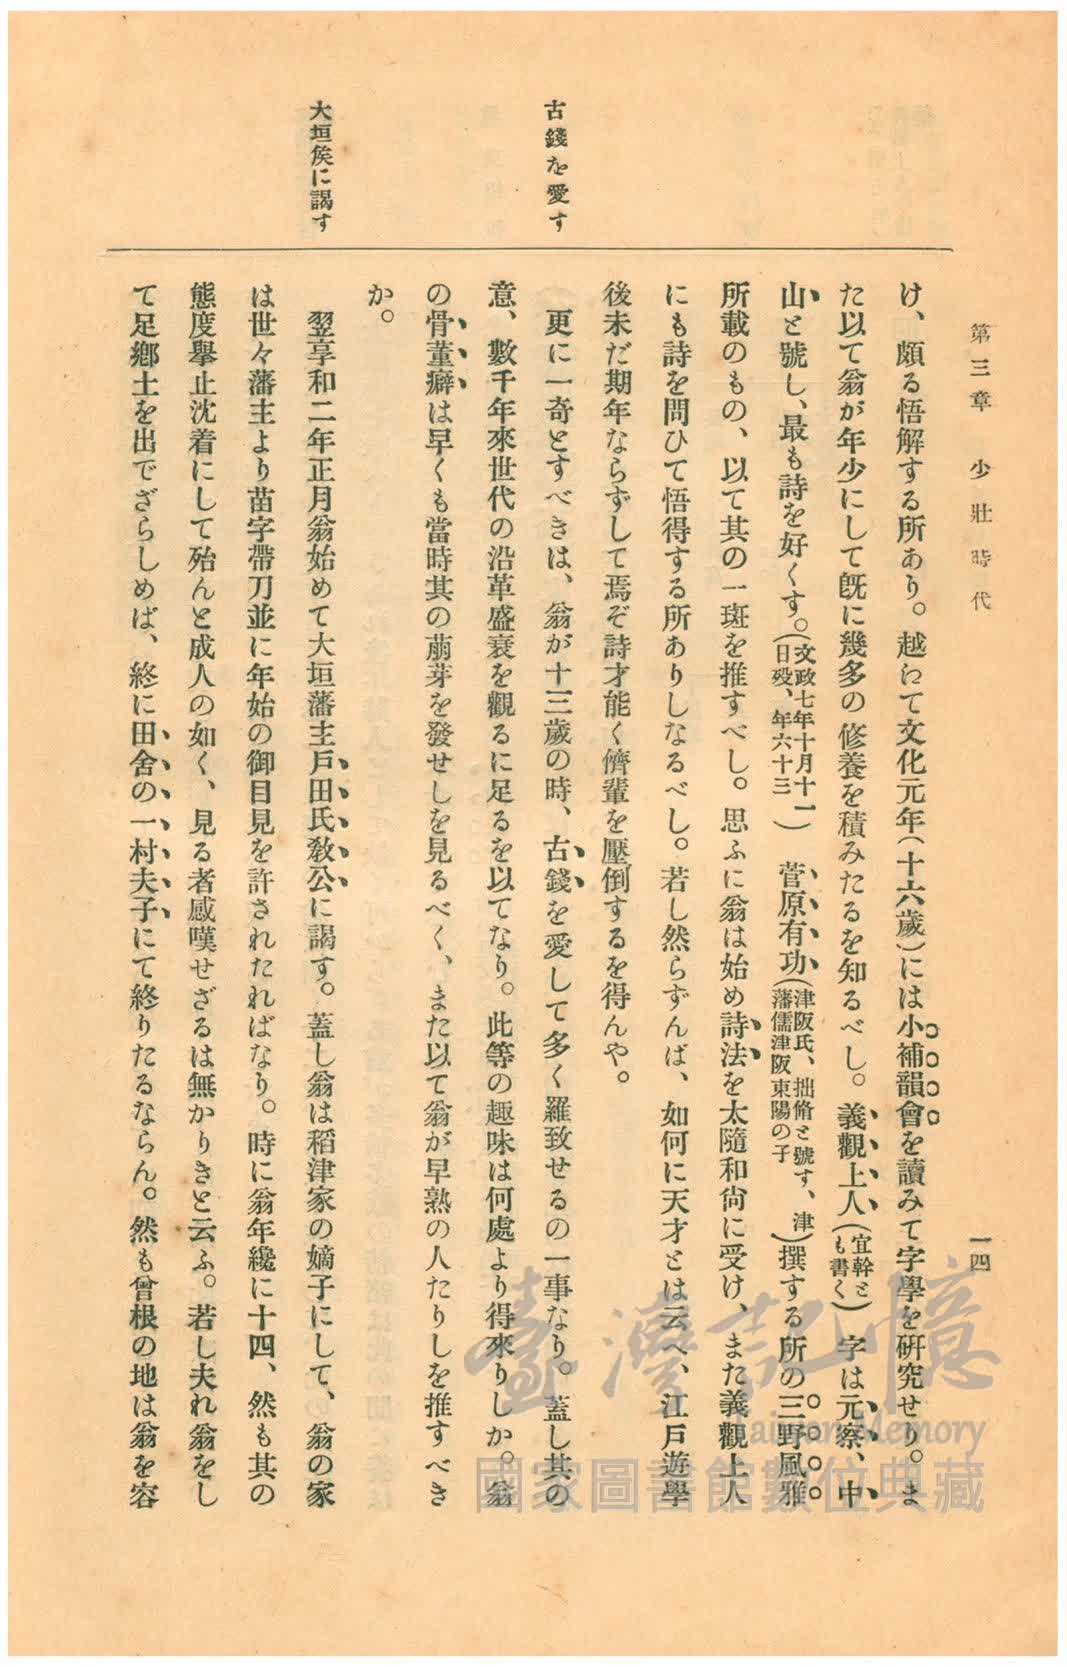 第三章　少壯時代　一四
古錢を愛す
大垣侯に謁す
け、頗る悟解する所あり。越ねて文化元年（十六歲）には小補韻會を讀みて字學を硏究せり。ま
た以て翁が年少にして旣に幾多の修養を積みたるを知るべし。義觀上人（宜幹とも書く）字は元察、中
山と號し、最も詩を好くす。（文政七年十月十一日歿、年六十三）菅原有功（津阪氏、拙脩と號す、津藩儒津阪東陽の子）撰する所の三野風雅
所載のもの、以て其の一斑を推すべし。思ふに翁は始め詩法を太隨和尙に受け、また義觀上人
にも詩を問ひて悟得する所ありしなるべし。若し然らずんば、如何に天才とは云へ、江戶遊學
後未だ期年ならずして焉ぞ詩才能く儕輩を壓倒するを得んや。
更に一奇とすべきは、翁が十三歲の時、古錢を愛して多く羅致せるの一事なり。蓋し其の
意、數千年來世代の沿革盛衰を觀るに足るを以てなり。此等の趣味は何處より得來りしか。翁
の骨董癖は早くも當時其の萠芽を發せしを見るべく、また以て翁が早熟の人たりしを推すべき
か。
翌享和二年正月翁始めて大垣藩主戶田氏敎公に謁す。蓋し翁は稻津家の嫡子にして、翁の家
は世々藩主より苗字帶刀並に年始の御目見を許されたればなり。時に翁年纔に十四、然も其の
態度擧止沈着にして殆んと成人の如く、見る者感嘆せざるは無かりきと云ふ。若し夫れ翁をし
て足鄕土を出でざらしめば、終に田舍の一村夫子にて終りたるならん。然も曾根の地は翁を容
臺灣記憶
Taiwan Memory
國家圖書館數位典藏